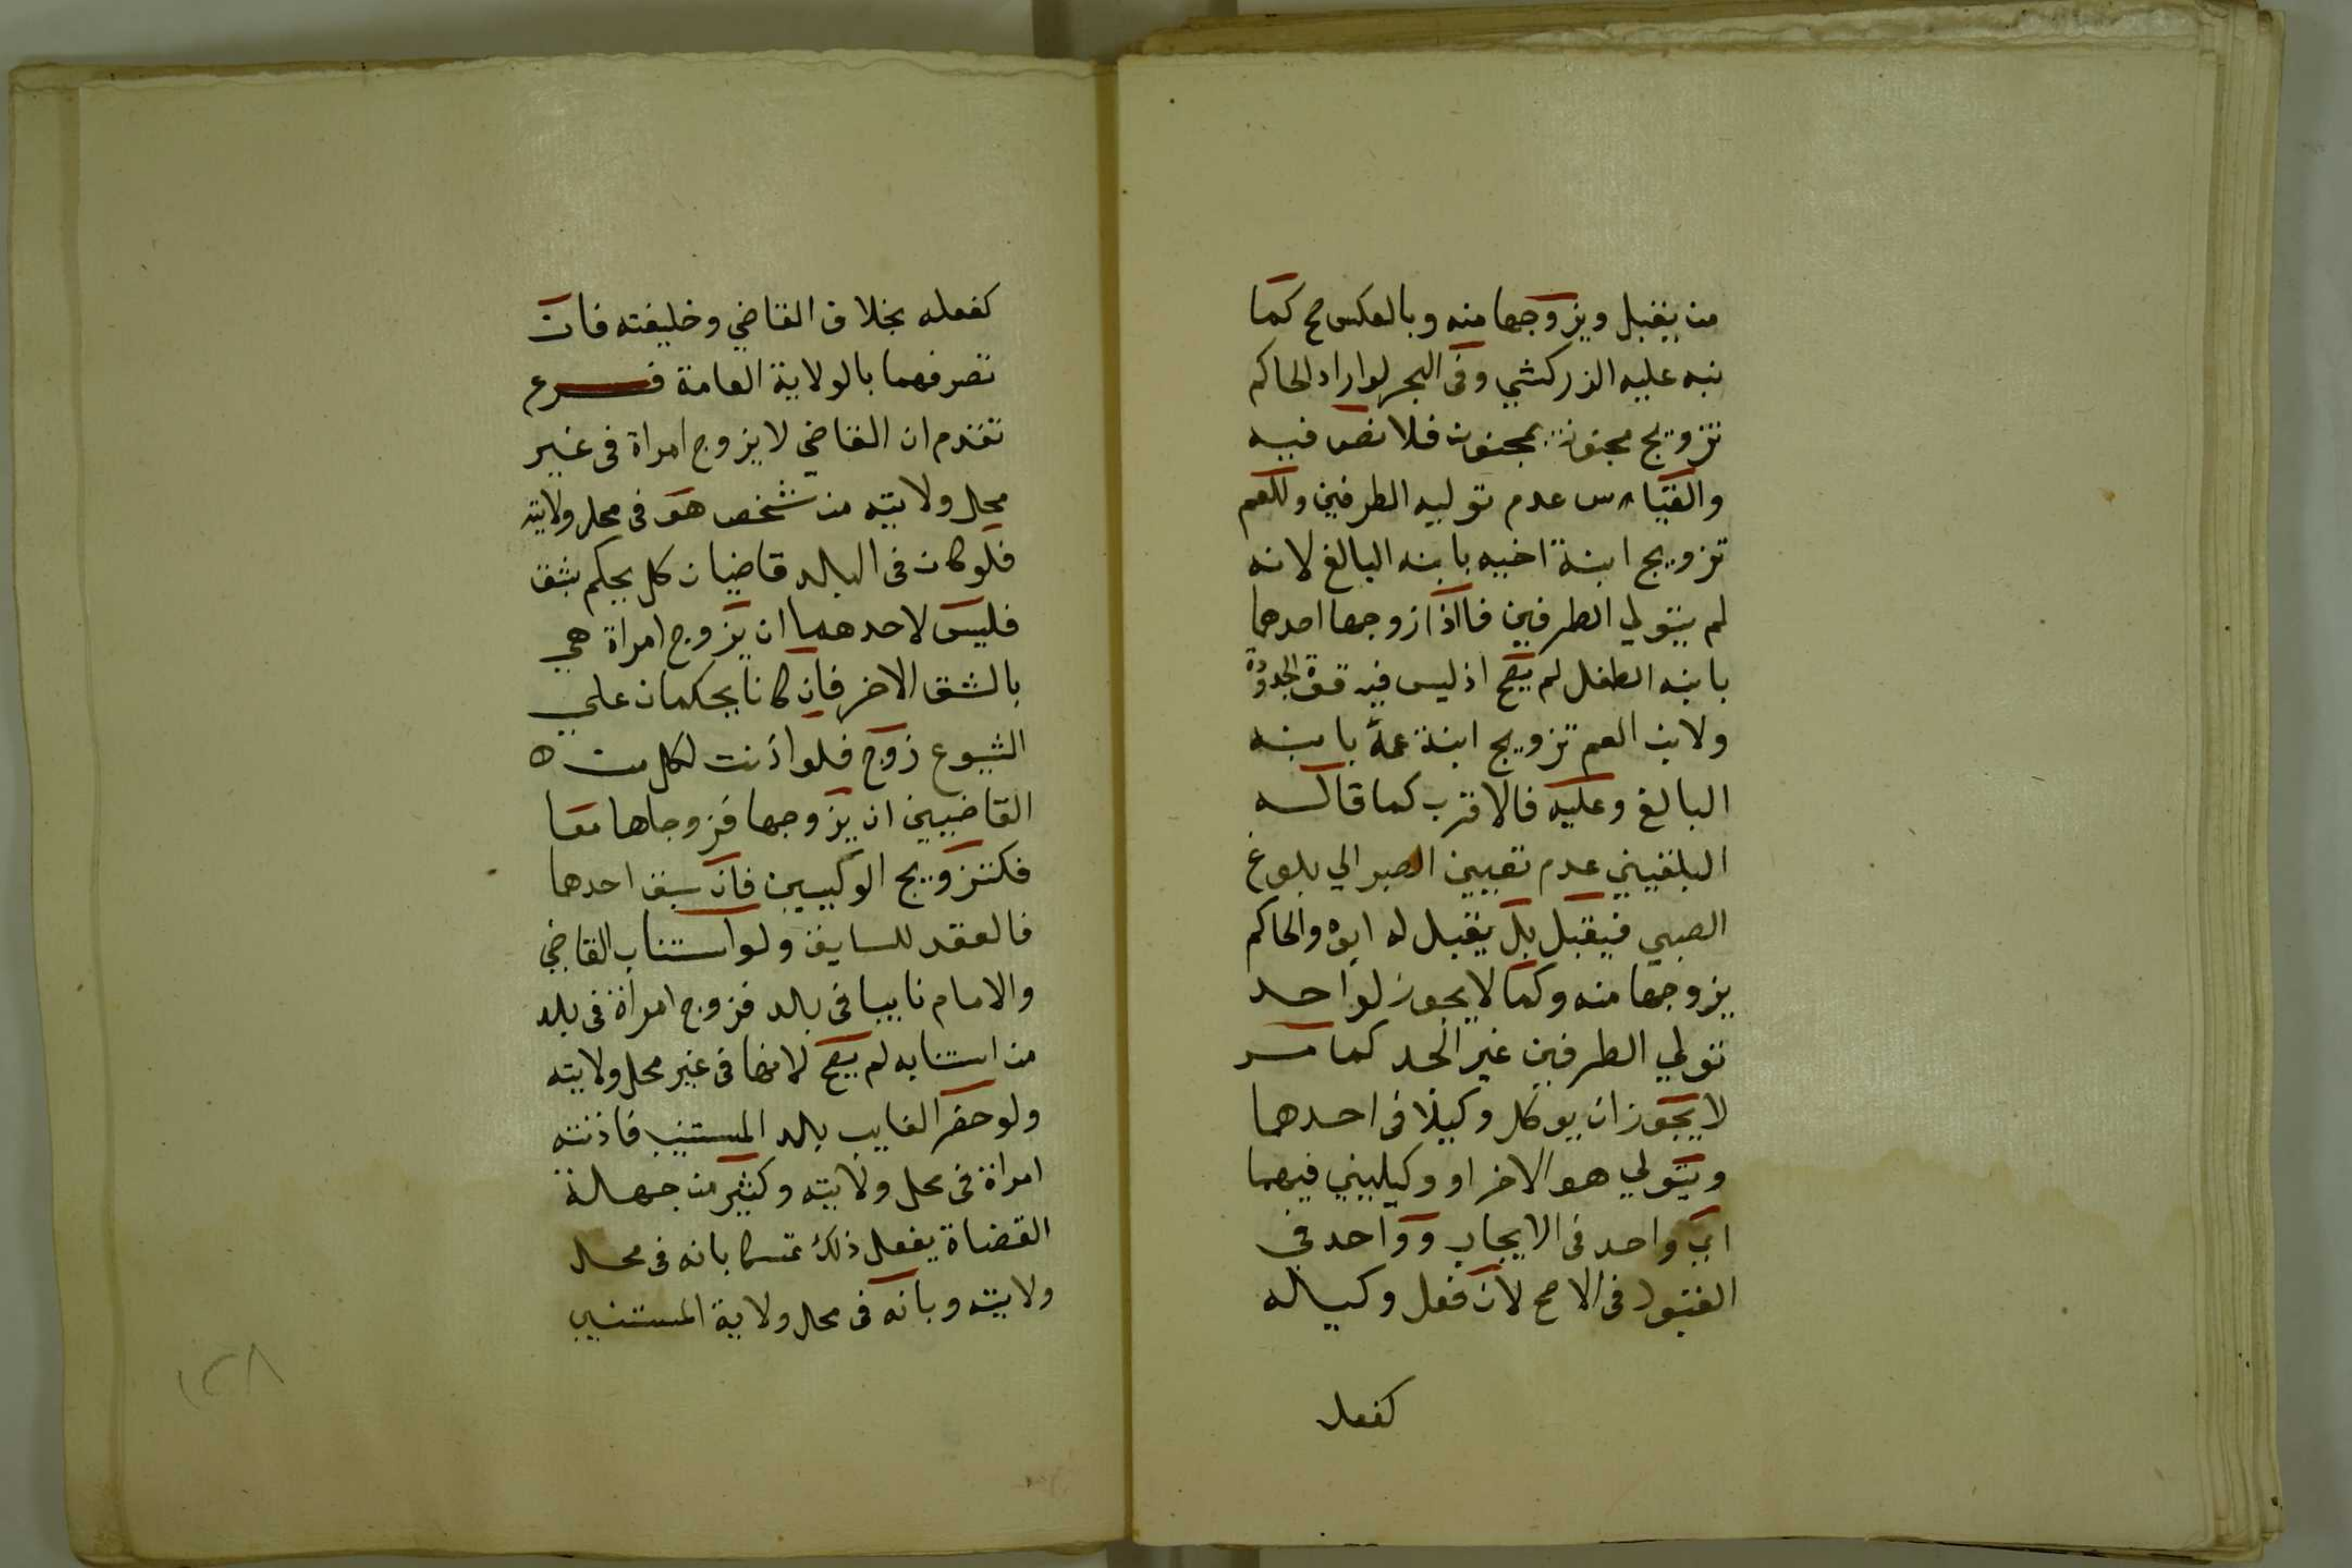 من يقبل ويزوجها منه وبالعكس صح كما
نبه عليه الزركشي وفى البحر لو اراد الحاكم
تزويج مجنونة بمجنون فلا نص فيه
والقياس عدم توليه الطرفين وللعم
تزويج ابنة اخيه بابنه البالغ لانه
لم يتولي الطرفين فااذا زوجها احدهما
بابنه الطفل لم يصح اذ ليس فيه قوة الجدودة
ولابن العم تزويج ابنة عمه بابنه
البالغ وعليه فالاقرب كما قاله
البلقيني عدم تعيين الصبر الي بلوغ
الصبي فيقبل بل يقبل له ابوه والحاكم
يزوجها منه وكما لا يجوز لواحد
تولي الطرفين غير الجد كما مر
لا يجوز ان يوكل وكيلا فى احدهما
ويتولي هو الاخر او وكيليني فيهما
اي واحد فى الايجاب وواحد في
القبول فى الاصح لان فعل وكيله
كفعل
كفعله بخلاف القاضي وخليفته فان
تصرفهما بالولاية العامة فرع
تقدم ان القاضي لا يزوج امراة فى غير
محل ولايته من شخص هو فى محل ولايته
فلو كان فى البلد قاضيان كل يحكم بشق
فليس لاحدهما ان يزوج امراة هي
بالشق الاخر فان كانا يحكمان علي
الشيوع زوج فلو اذنت لكل من ه
القاضيين ان يزوجها فزوجاها معا
فكتزويج الوكيلين فان سبق احدها
فالعقد للسابق ولو استناب القاضي
والامام نايبا فى بلد فزوج امراة فى بلد
من استنابه لم يصح لانها فى غير محل ولايته
ولو حضر الغايب بلد المستنيب فاذنته
امراة فى محل ولايته وكثير من جهالة
القضاة يفعل ذلك تمسكا بانه فى محل
ولايته وبانه فى محل ولاية المستنيب
١٢٨